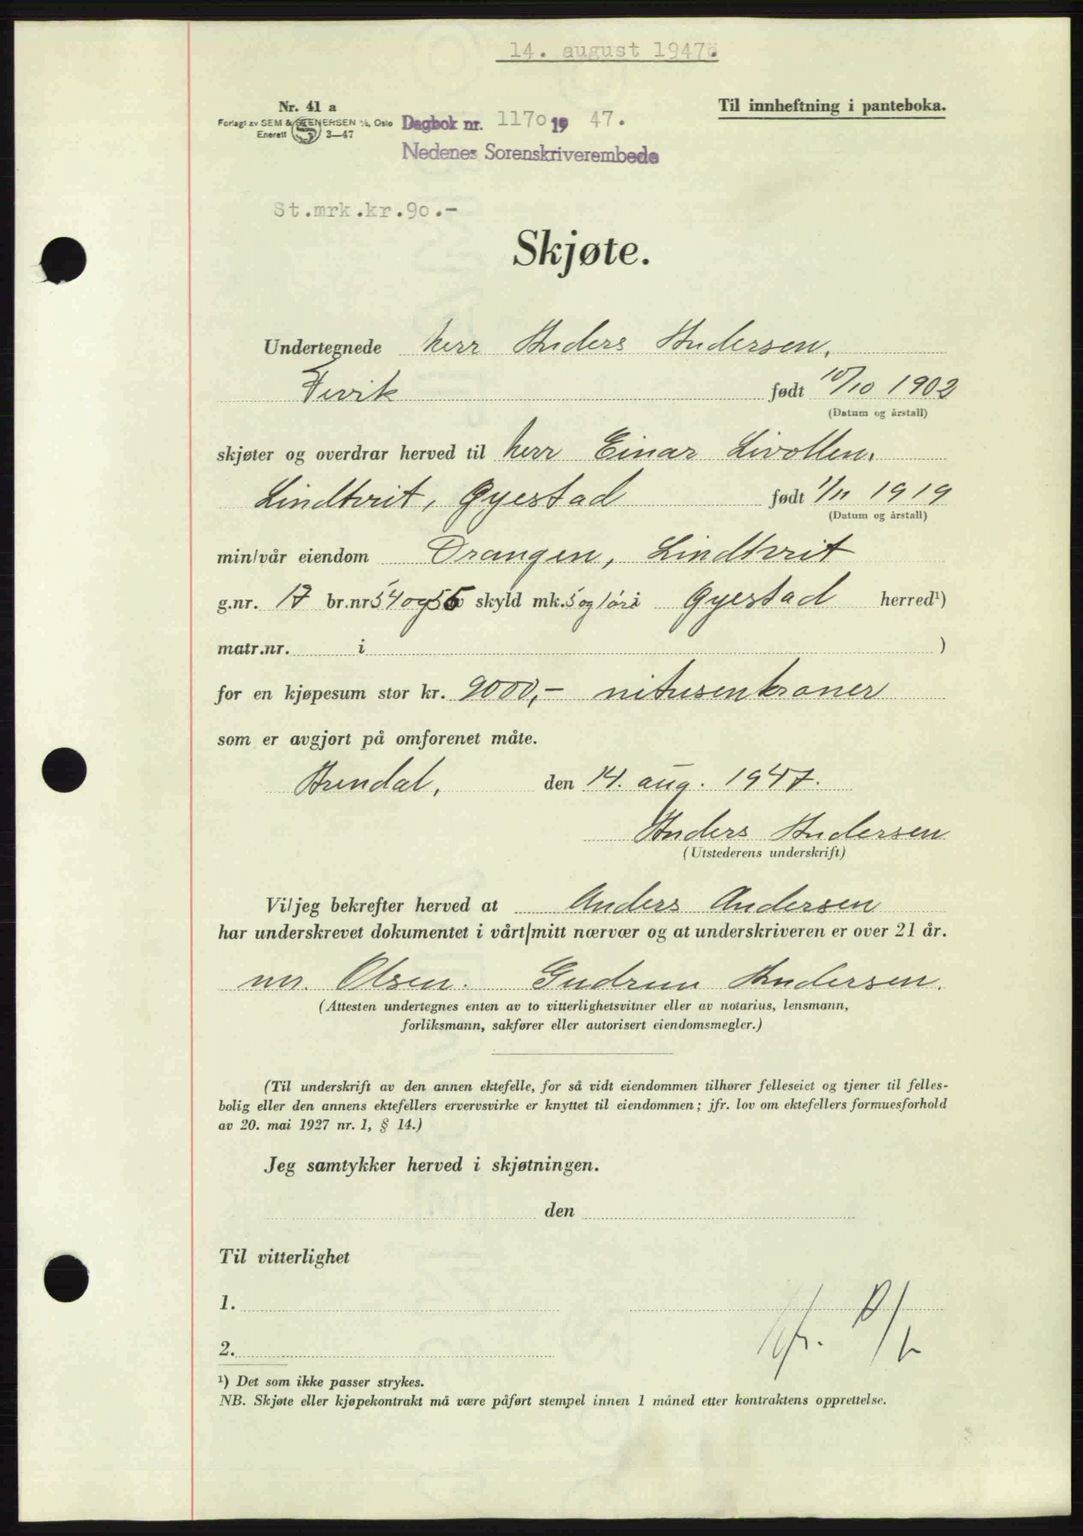 14. august 1947
Nr. 41 a
Til innheftning i panteboka.
Forlagt av SEM & STENERSEN A/S, Oslo
Enerett S 3—47
Dagbok nr. 1170 19 47.
Nedenes Sorenskriverembede
St.mrk.kr.90.-
Skjøte.
Undertegnede herr Anders Andersen,
Fevik født 10/10 1902
(Datum og årstall)
skjøter og overdrar herved til herr Einar Livollen,
Lindtveit, Øyestad født 1/11 1919
(Datum og årstall)
min/vår eiendom Vrangen, Lindtveit
g.nr. 17 br.nr 54 og 55 skyld mk. 5 og 1 øre i Øyestad herred¹)
matr.nr. i )
for en kjøpesum stor kr. 9000,- nitusenkroner
som er avgjort på omforenet måte.
Arendal, den 14. aug. 1947.
Anders Andersen
(Utstederens underskrift)
Vi/jeg bekrefter herved at Anders Andersen
har underskrevet dokumentet i vårt/mitt nærvær og at underskriveren er over 21 år.
Olsen. Gudrun Andersen.
(Attesten undertegnes enten av to vitterlighetsvitner eller av notarius, lensmann,
forliksmann, sakfører eller autorisert eiendomsmegler.)
(Til underskrift av den annen ektefelle, for så vidt eiendommen tilhører felleseiet og tjener til felles-
bolig eller den annens ektefellers ervervsvirke er knyttet til eiendommen; jfr. lov om ektefellers formuesforhold
av 20. mai 1927 nr. 1, § 14.)
Jeg samtykker herved i skjøtningen.
den
Til vitterlighet
1.
2.
¹) Det som ikke passer strykes.
NB. Skjøte eller kjøpekontrakt må være påført stempel innen 1 måned etter kontraktens opprettelse.